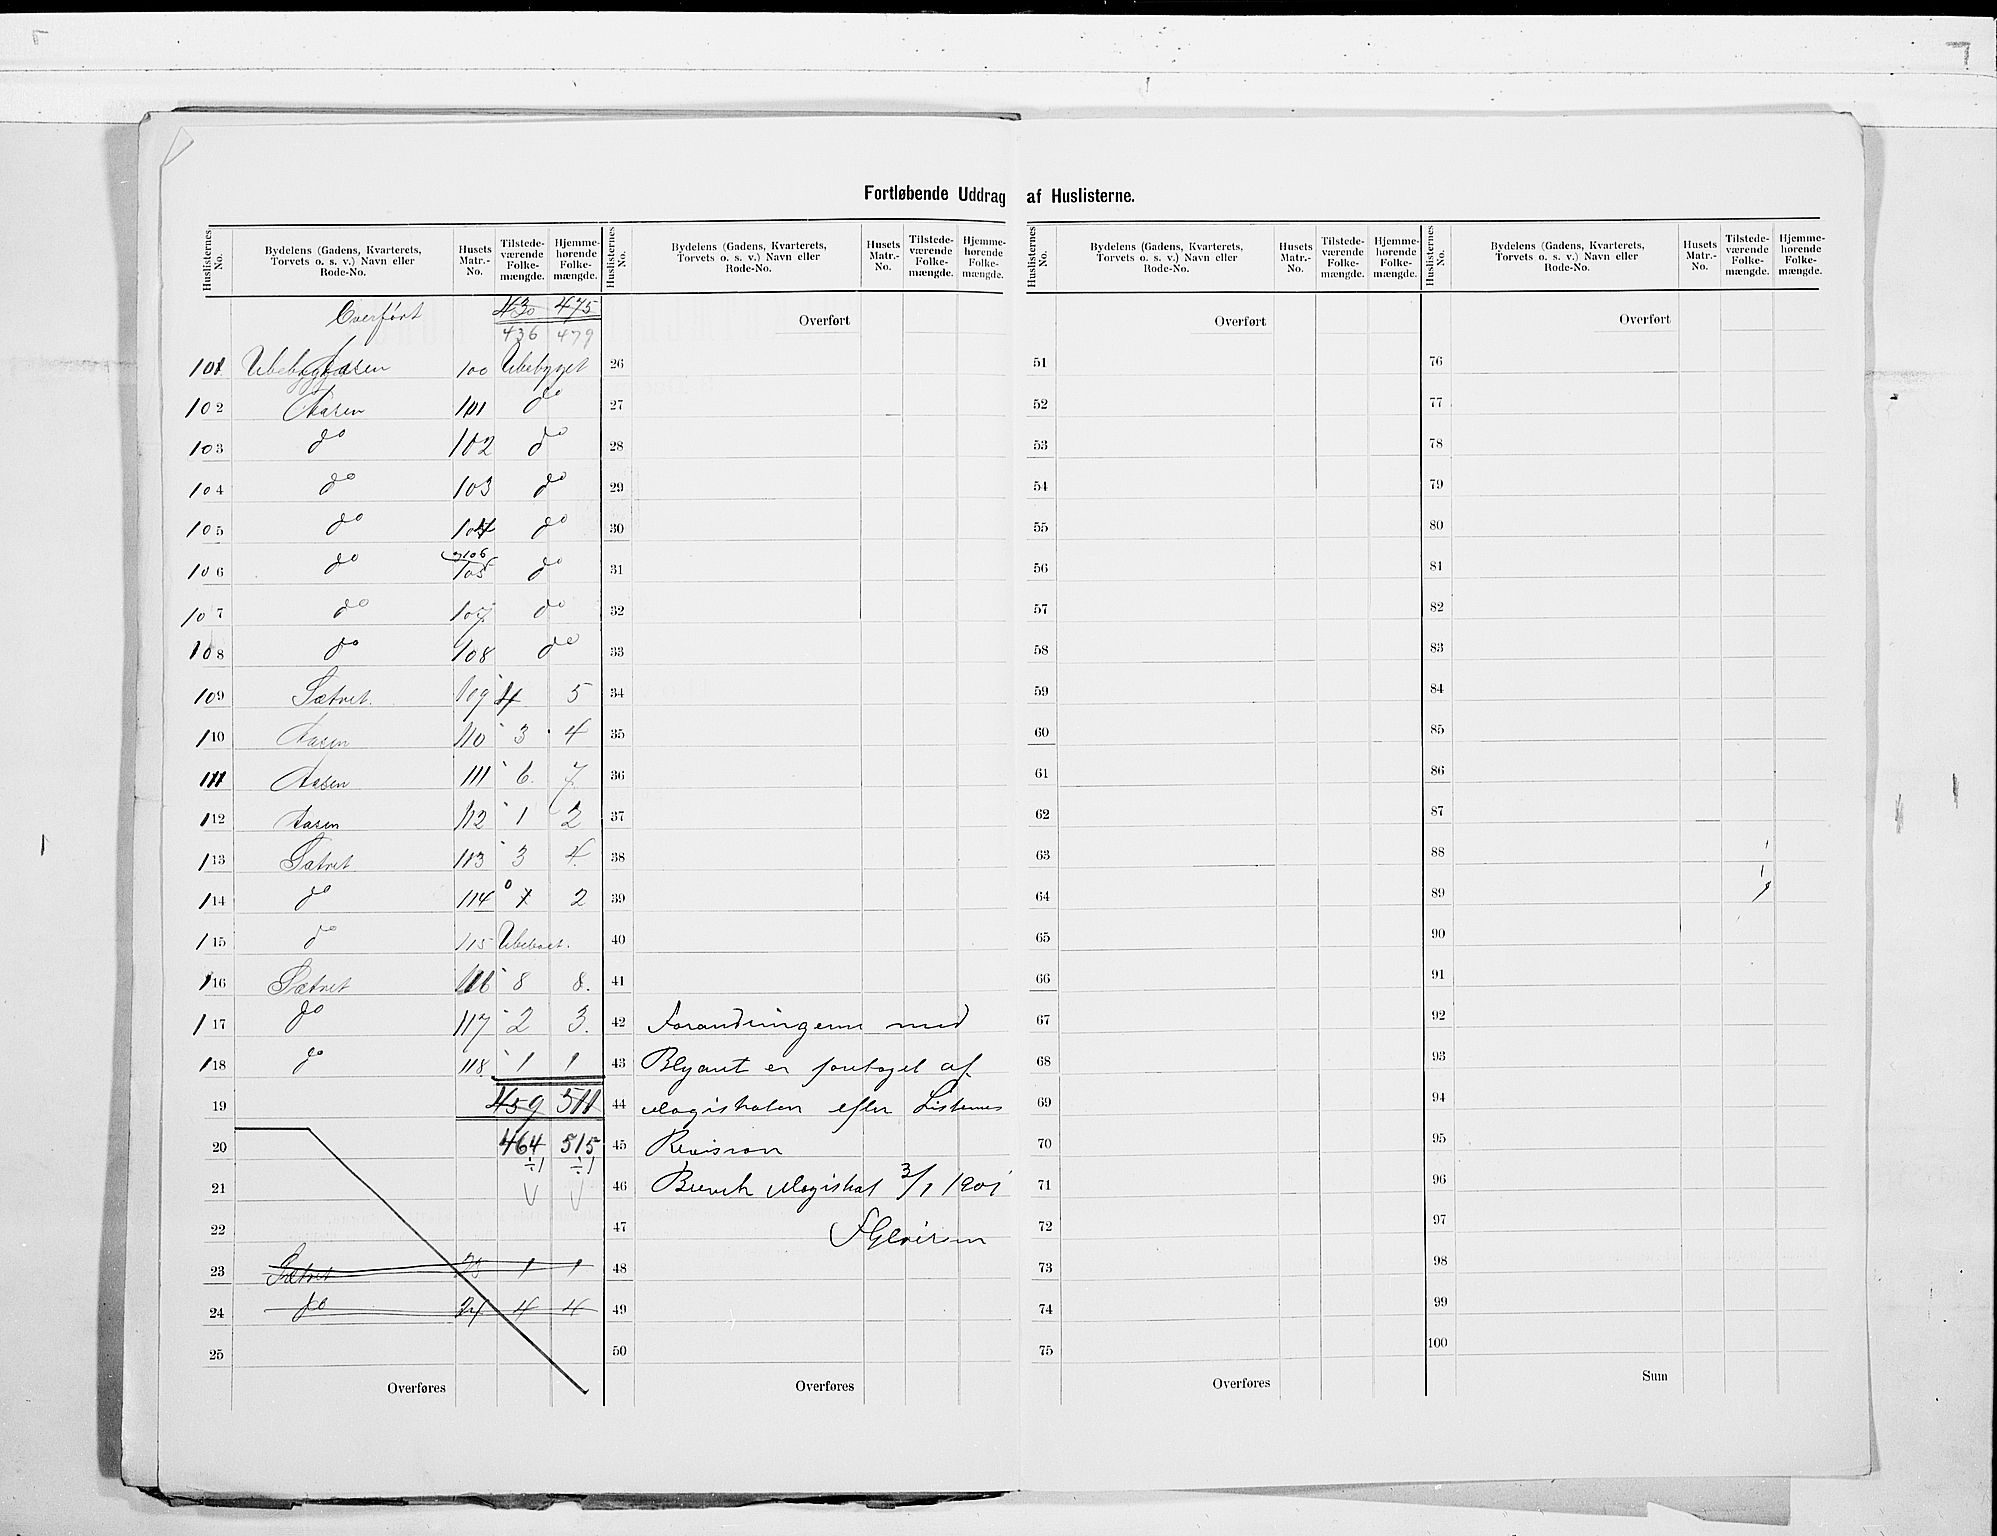 Fortløbende Uddrag af Huslisterne.
Huslisternes No. | Bydelens (Gadens, Kvarterets, Torvets o. s. v.) Navn eller Rode-No. | Husets Matr.-No. | Tilstedeværende Folkemængde. | Hjemmehørende Folkemængde.
Overført 430 475
436 479
101 Aasen 100 Ubebygget
102 Aasen 101 do
103 do 102 do
104 do 103 do
105 do 104 do
106 do 105 og 106 do
107 do 107 do
108 do 108 do
109 Sætret. 109 4 5
110 Aasen 110 3 4
111 Aasen 111 6 7
112 Aasen 112 1 2
113 Sætret 113 3 4
114 do 114 0 1 2
115 do 115 Ubeboet.
116 Sætret 116 8 8.
117 do 117 2 3.
118 do 118 1 1
19 459 511
20 464 515
÷1 ÷1
21
22
23 Sætret 23 1 1
24 do 24 4 4
25
Overføres
Huslisternes No. | Bydelens (Gadens, Kvarterets, Torvets o. s. v.) Navn eller Rode-No. | Husets Matr.-No. | Tilstedeværende Folkemængde. | Hjemmehørende Folkemængde.
Overført
26
27
28
29
30
31
32
33
34
35
36
37
38
39
40
41
42 Forandringerne med
43 Blyant er foretaget af
44 Magistraten efter Listernes
45 Revision
46 Brevik Magistrat 3/1 1901
47
48
49
50
Overføres
Huslisternes No. | Bydelens (Gadens, Kvarterets, Torvets o. s. v.) Navn eller Rode-No. | Husets Matr.-No. | Tilstedeværende Folkemængde. | Hjemmehørende Folkemængde.
Overført
51
52
53
54
55
56
57
58
59
60
61
62
63
64
65
66
67
68
69
70
71
72
73
74
75
Overføres
Huslisternes No. | Bydelens (Gadens, Kvarterets, Torvets o. s. v.) Navn eller Rode-No. | Husets Matr.-No. | Tilstedeværende Folkemængde. | Hjemmehørende Folkemængde.
Overført
76
77
78
79
80
81
82
83
84
85
86
87
88
89
90
91
92
93
94
95
96
97
98
99
100
Sum